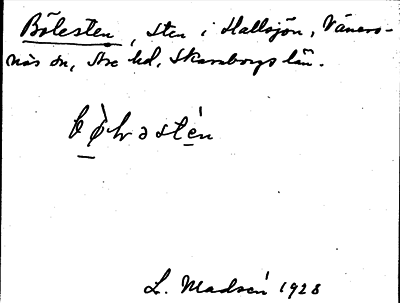 Bölesten, sten i Hallsjön, Väners-
näs sn, Åse hd, Skaraborgs län.
bø̀lvəstén
L. Madsén 1928